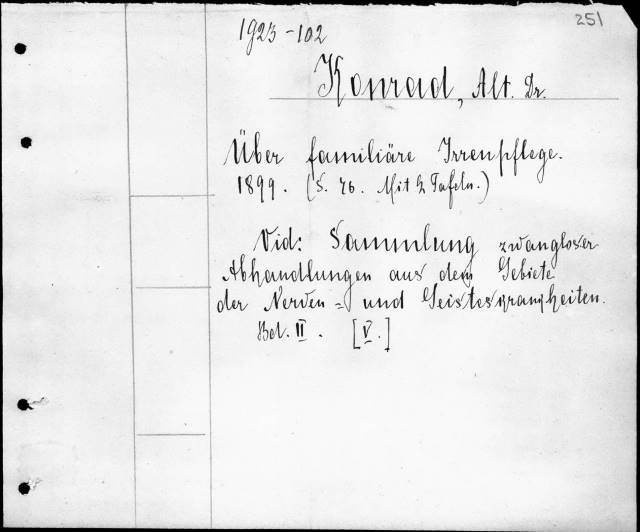 251
1923-102
Konrad, Alt. Dr.
Über familiäre Irrenpflege.
1899. (S. 76. Mit 2 Tafeln.)
Vid: Sammlung zwangloser
Abhandlungen aus dem Gebiete
der Nerven= und Geisteskrankheiten.
Bd. II. [V.]